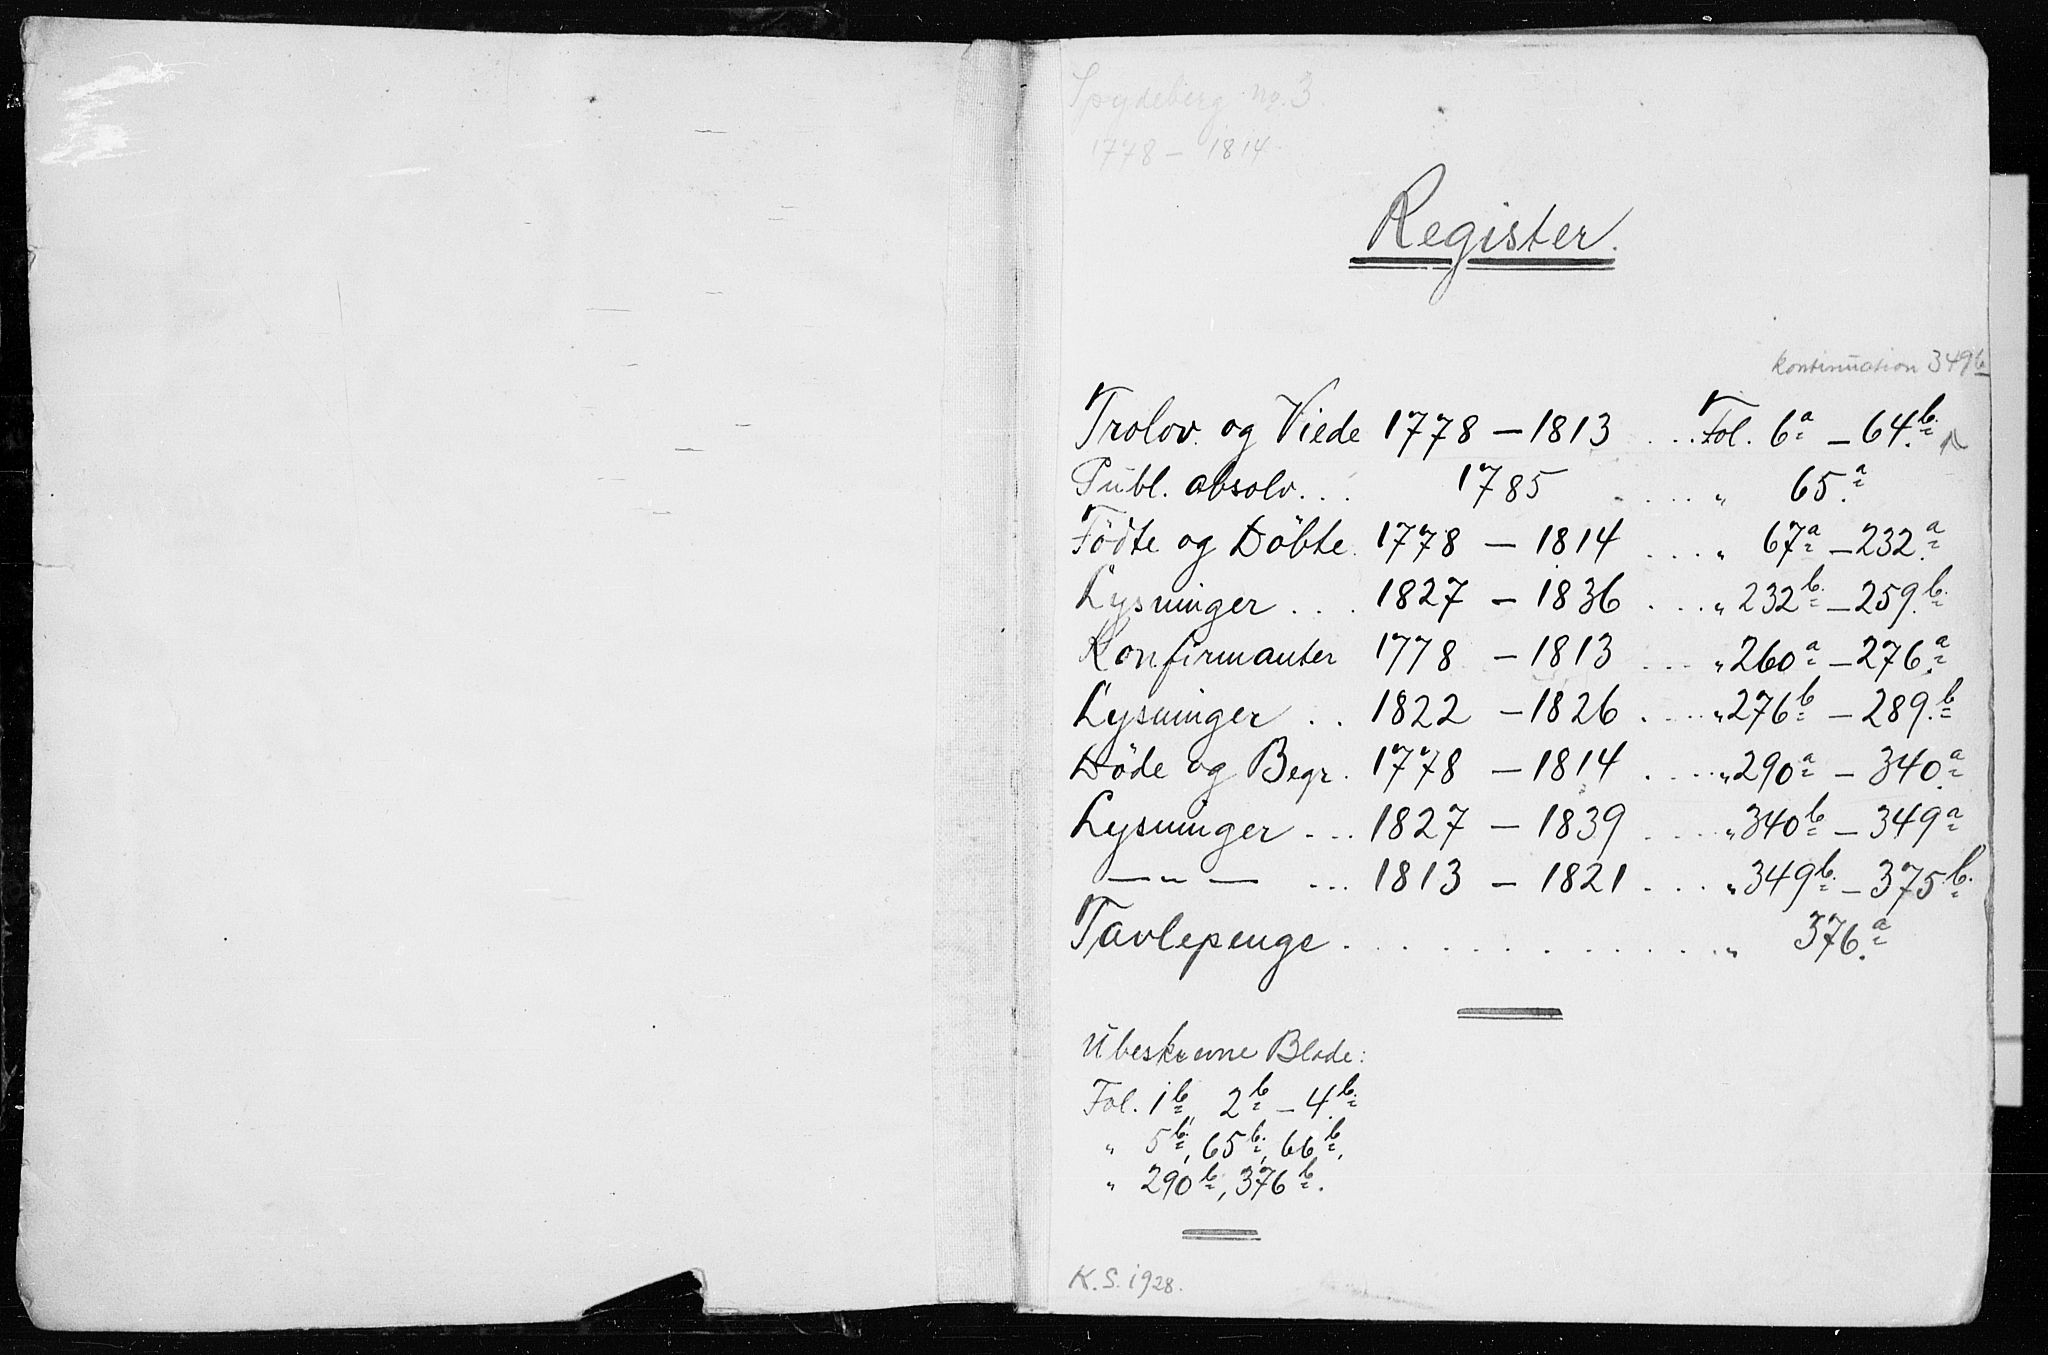 Spydeberg no. 3.
1778 – 1814
Register.
kontinuation 349b
Trolov. og Viede 1778 – 1813 ... Fol. 6a – 64b.
Publ. absolv. .. 1785 .... „ 65a.
Födte og Döbte. 1778 – 1814 .... „ 67a – 232a.
Lysninger ... 1827 – 1836 .... „ 232b – 259b.
Konfirmanter 1778 – 1813 .... „ 260a – 276a.
Lysninger .. 1822 – 1826 .... „ 276b – 289b.
Döde og Begr. 1778 – 1814 .... „ 290a – 340a.
Lysninger ... 1827 – 1839 .... „ 340b – 349a
— „ — ... 1813 – 1821 .... „ 349b – 375b.
Tavlepenge ............ „ 376a.
Ubeskrevne Blade:
Fol. 1b, 2b – 4b.
„ 5b, 65b, 66b,
„ 290b, 376b.
K. S. 1928.